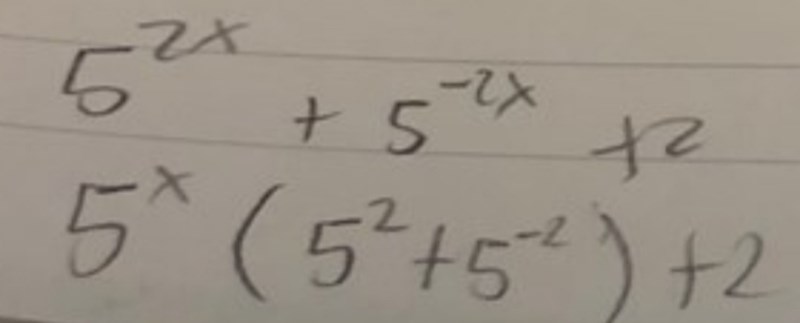 5^{2x} + 5^{-2x} + 2
5^{x} (5^{2} + 5^{-2}) + 2